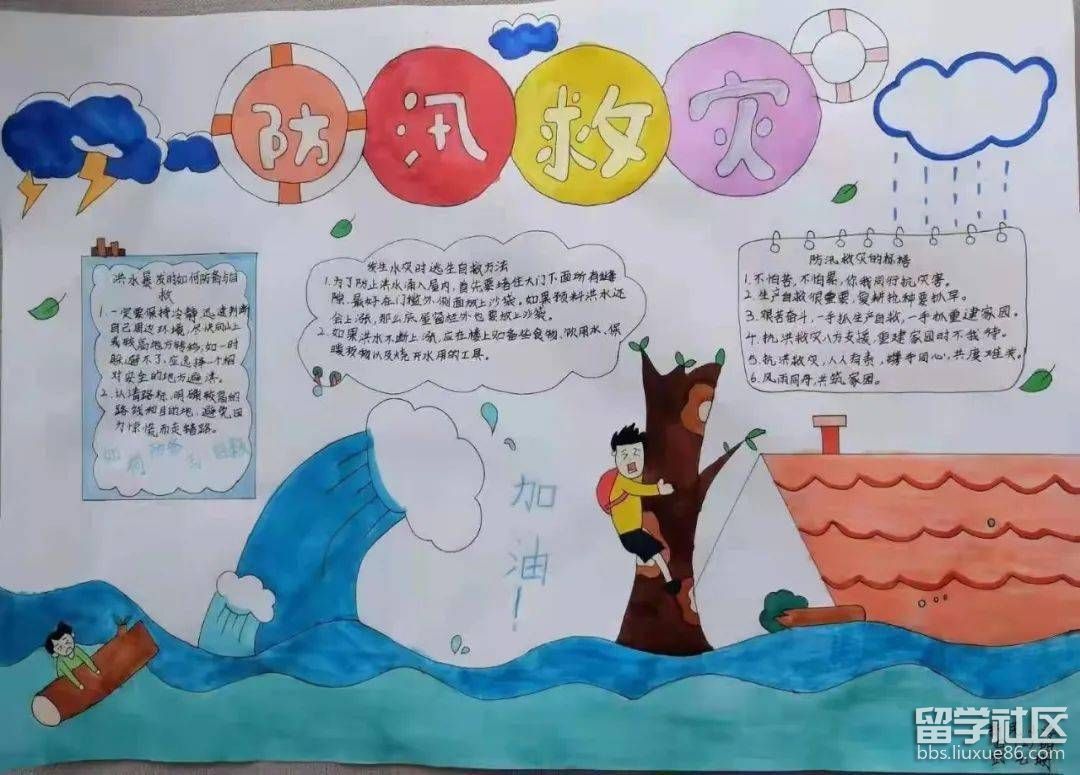 防汛救灾
洪水暴发时如何防备与自
救
1、一定要保持冷静,迅速判断
自己周边环境,尽快向山上
或较高地方转移,如一时
躲避不了,应选择一个相
对安全的地方避洪。
2、认清路标,明确撤离的
路线和目的地,避免因
为惊慌而走错路。
发生水灾时逃生自救方法
1、为了防止洪水涌入屋内,首先要堵住大门下面所有缝
隙,最好在门槛外侧面放上沙袋。如果预料洪水还
会上涨,那么底层窗槛外也要放上沙袋。
2、如果洪水不断上涨,应在楼上贮备些食物、饮用水、保
暖衣物以及烧开水用的工具。
防汛救灾的标语
1、不怕苦,不怕累,你我同行抗灾害。
2、生产自救很重要,复耕抢种要抓早。
3、艰苦奋斗,一手抓生产自救,一手抓重建家园。
4、抗洪救灾人为支援,重建家园时不我待。
5、抗洪救灾,人人有责,携手同心,共度难关。
6、风雨同舟,共筑家园。
加
油!
留学社区
bbs.liuxue86.com